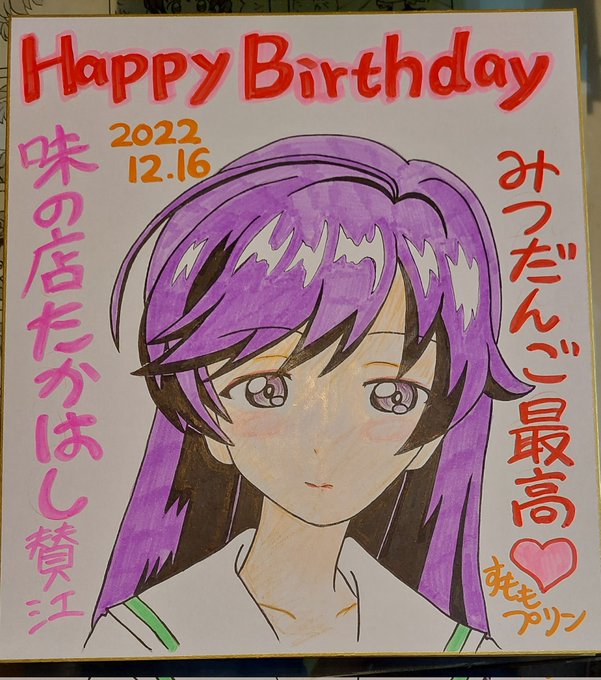 Happy Birthday
2022
12.16
味の店たかはし賛江
みつだんご最高♡
すもも
プリン